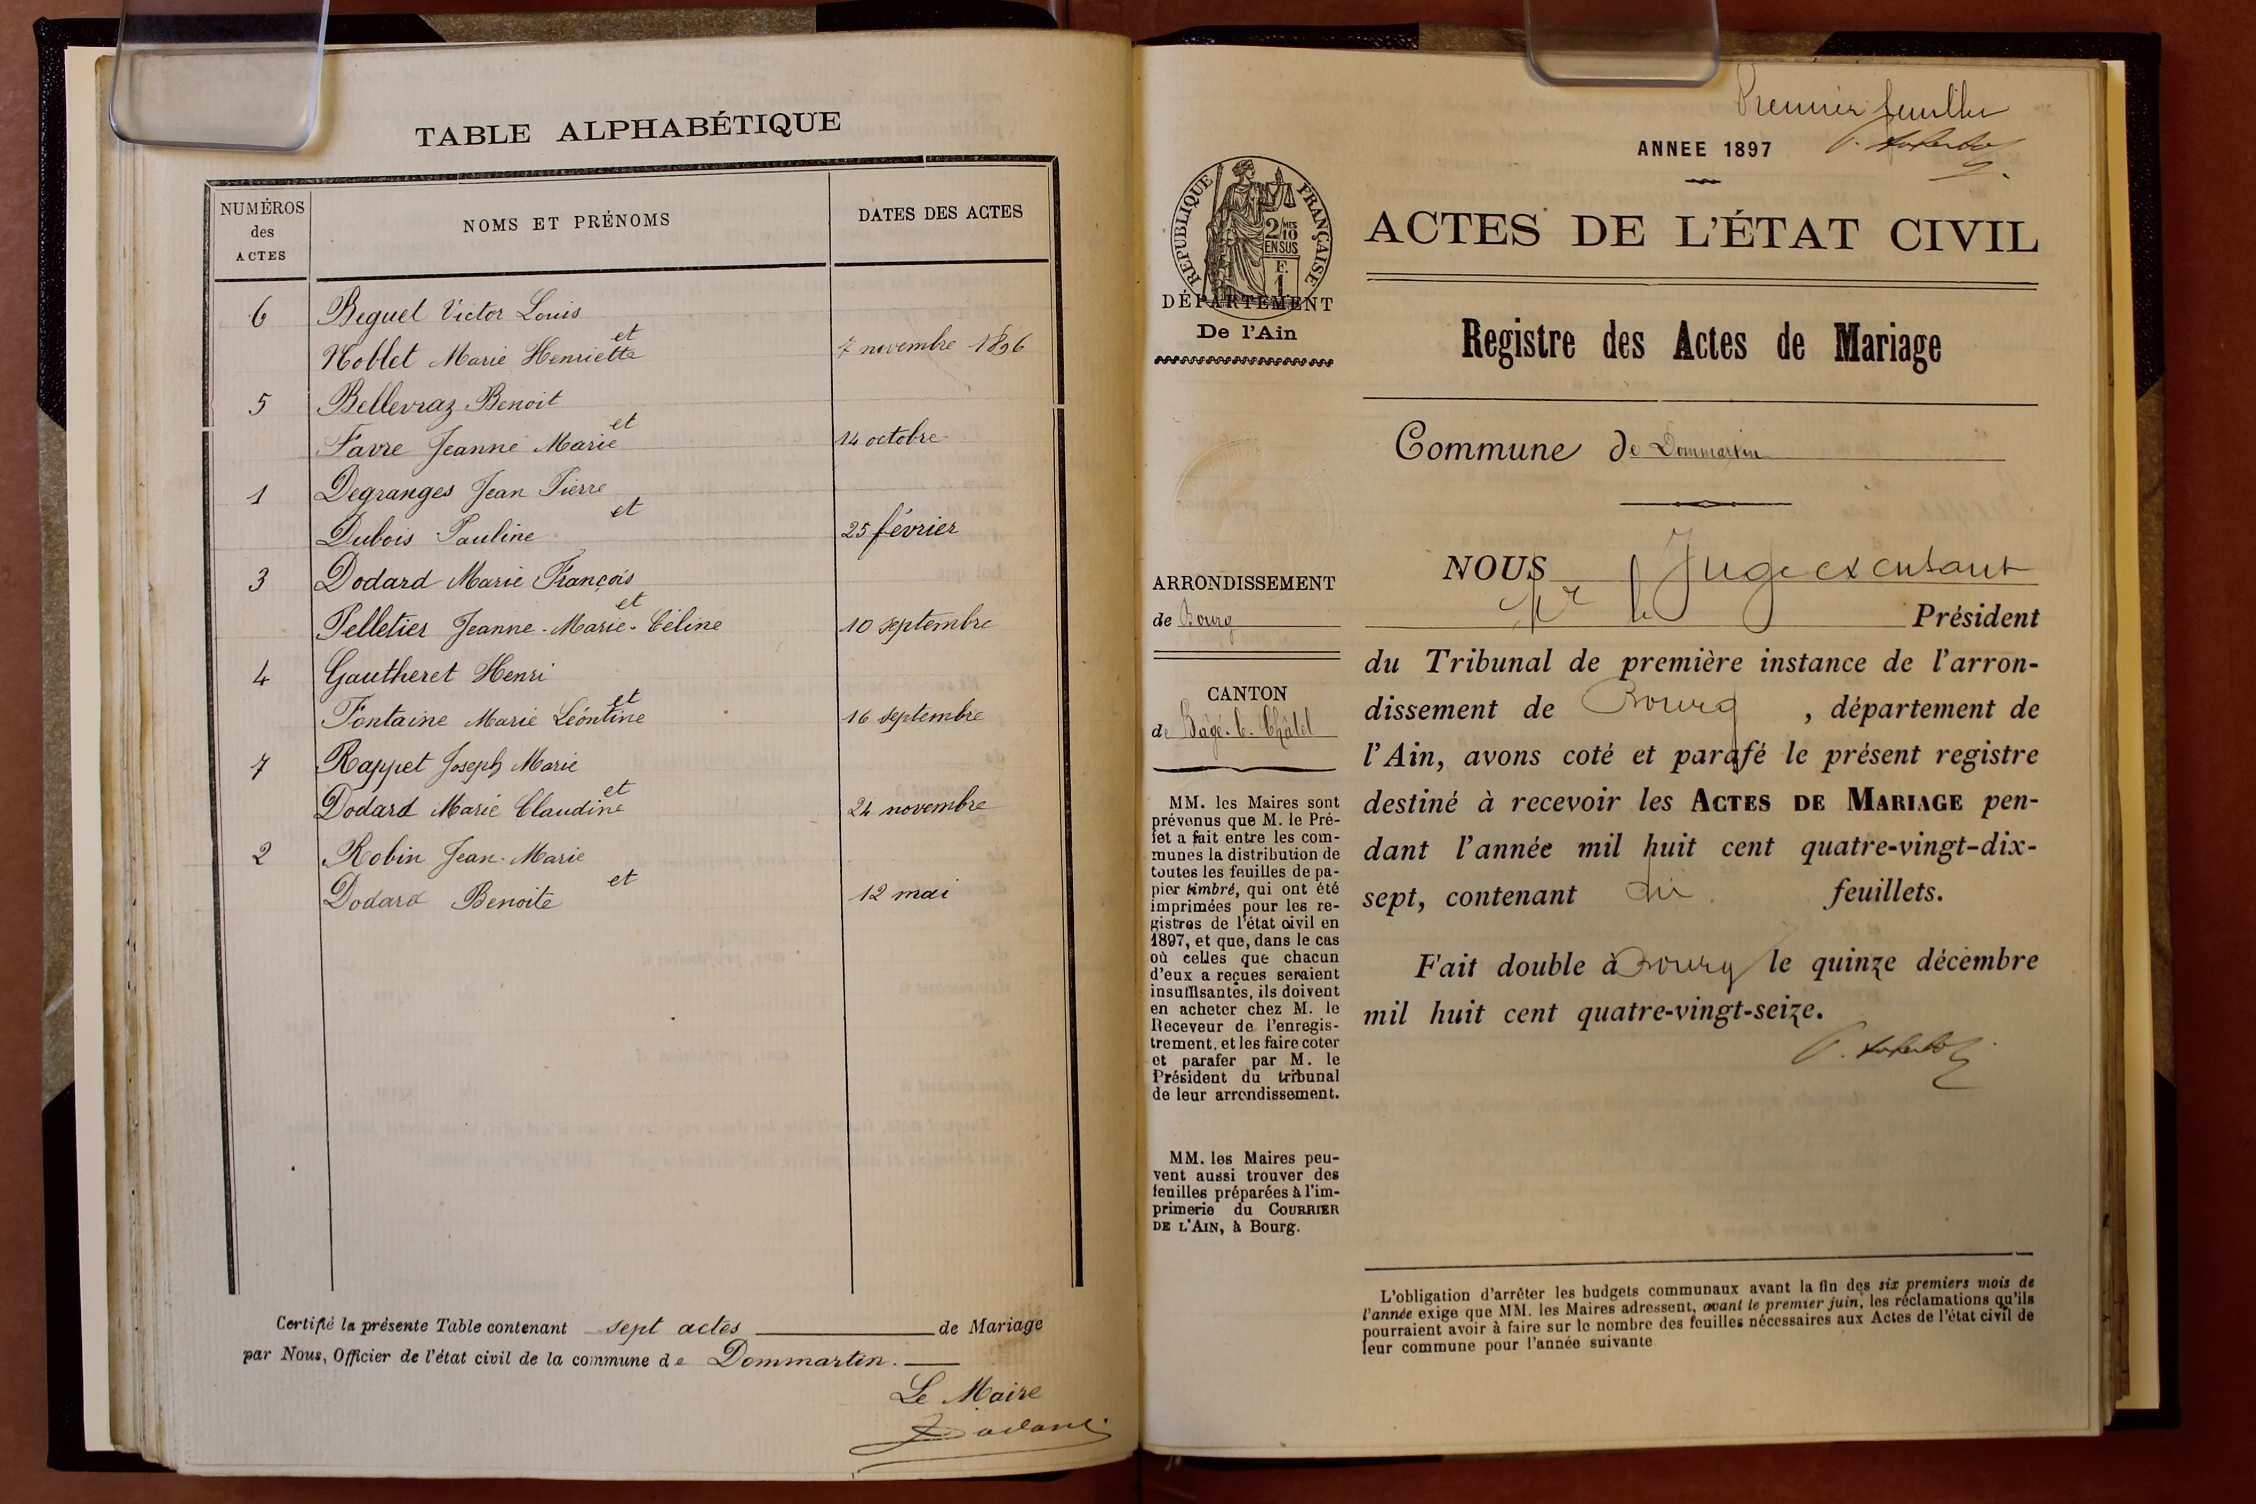 TABLE ALPHABÉTIQUE
NUMÉROS
des
ACTES
NOMS ET PRÉNOMS
DATES DES ACTES
6 Beguet Victor Louis
et
Noblet Marie Henriette 7 novembre 1896
5 Bellevraz Benoit
et
Favre Jeanne Marie 14 octobre
1 Degranges Jean Pierre
et
Dubois Pauline 25 février
3 Dodard Marie François
et
Pelletier Jeanne-Marie-Céline 10 septembre
4 Gautheret Henri
et
Fontaine Marie Léontine 16 septembre
7 Rappet Joseph Marie
et
Dodard Marie Claudine 24 novembre
2 Robin Jean-Marie
et
Dodard Benoite 12 mai
Certifié la présente Table contenant sept actes de Mariage
par Nous, Officier de l'état civil de la commune de Dommartin.
Le Maire
Dodard
Premier feuillet
ANNEE 1897
RÉPUBLIQUE FRANÇAISE
2/10 MES
EN SUS
F.
1
DÉPARTEMENT
De l'Ain
ARRONDISSEMENT
de Bourg
CANTON
de Bâgé-le-Châtel
MM. les Maires sont
prévenus que M. le Pré-
fet a fait entre les com-
munes la distribution de
toutes les feuilles de pa-
pier timbré, qui ont été
imprimées pour les re-
gistres de l'état civil en
1897, et que, dans le cas
où celles que chacun
d'eux a reçues seraient
insuffisantes, ils doivent
en acheter chez M. le
Receveur de l'enregis-
trement, et les faire coter
et parafer par M. le
Président du tribunal
de leur arrondissement.
MM. les Maires peu-
vent aussi trouver des
feuilles préparées à l'im-
primerie du COURRIER
DE L'AIN, à Bourg.
ACTES DE L'ÉTAT CIVIL
Registre des Actes de Mariage
Commune de Dommartin
NOUS Juge
pr le Président
du Tribunal de première instance de l'arron-
dissement de Bourg, département de
l'Ain, avons coté et parafé le présent registre
destiné à recevoir les ACTES DE MARIAGE pen-
dant l'année mil huit cent quatre-vingt-dix-
sept, contenant feuillets.
Fait double à Bourg le quinze décembre
mil huit cent quatre-vingt-seize.
L'obligation d'arrêter les budgets communaux avant la fin des six premiers mois de
l'année exige que MM. les Maires adressent, avant le premier juin, les réclamations qu'ils
pourraient avoir à faire sur le nombre des feuilles nécessaires aux Actes de l'état civil de
leur commune pour l'année suivante